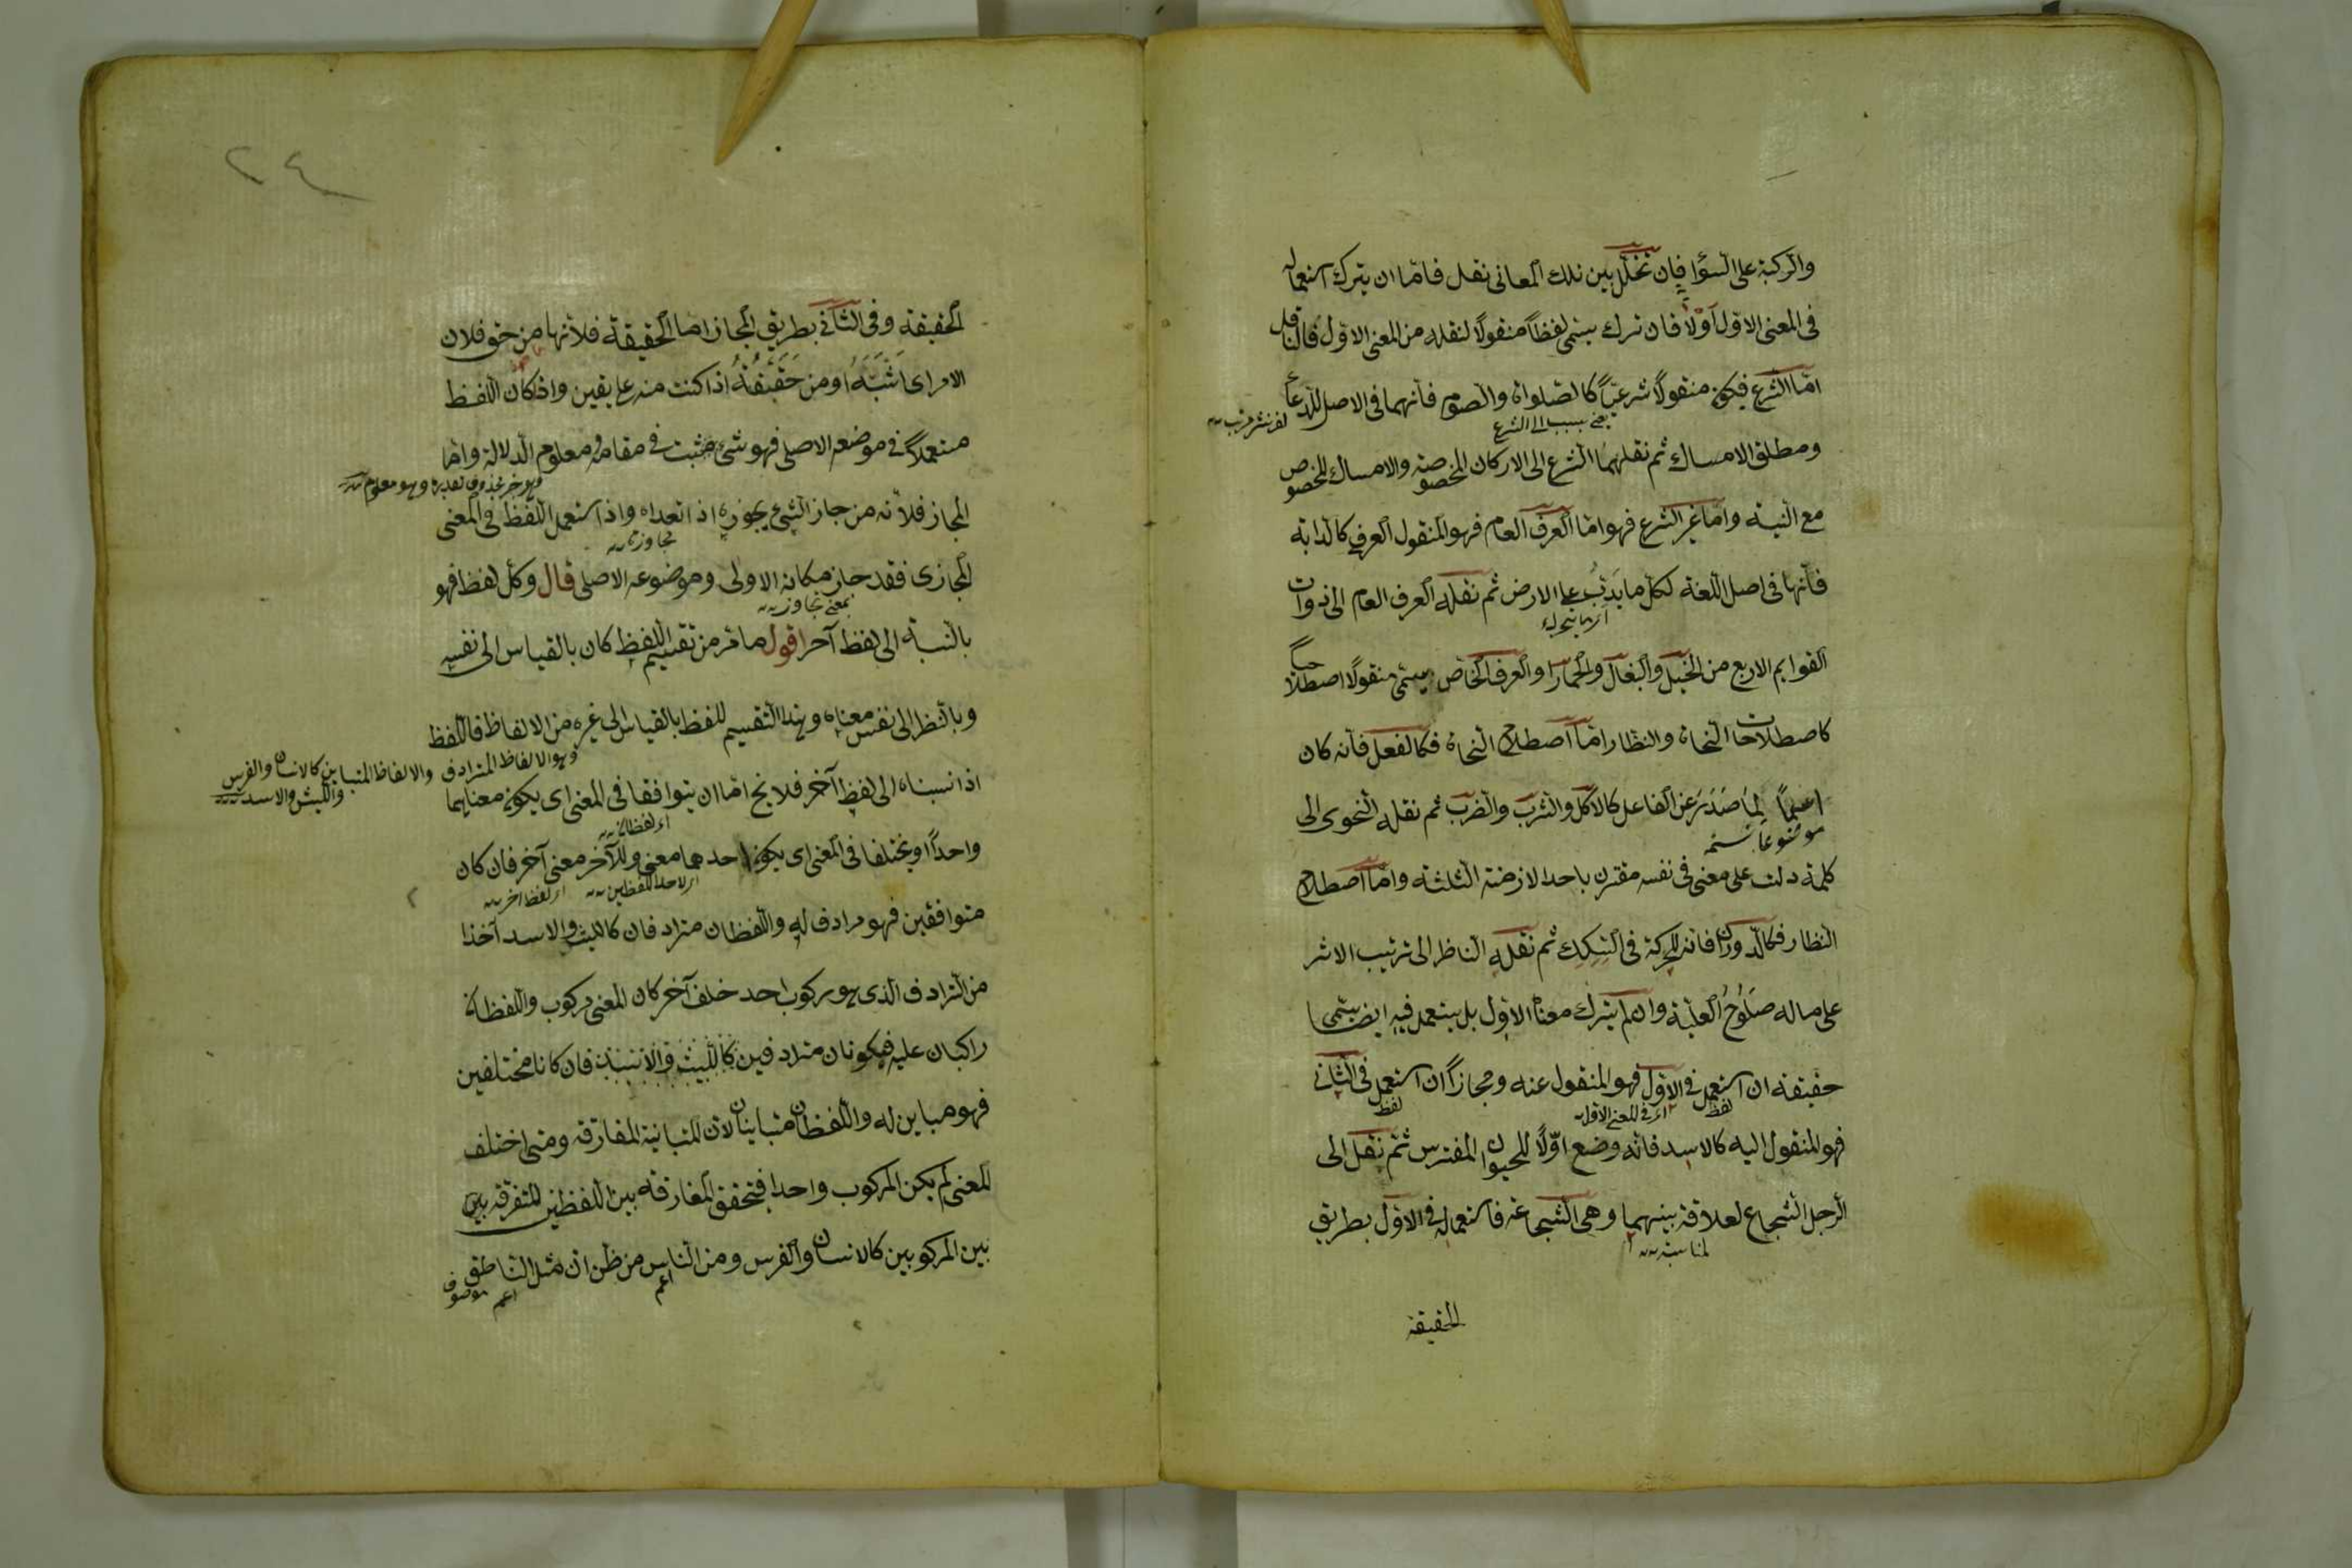 والركبة على السؤا فإن تخلل بين تلك المعانى نقل فاما ان يترك استعماله
فى المعنى الاول اولا فان ترك يسمى لفظا منقولا لنقله من المعنى الاول فالناقل
اما الشرع فيكون منقولا شرعيا كالصلواة والصوم فانهما فى الاصل للدعاء
ومطلق الامساك ثم نقلهما الشرع الى الاركان المخصوصة والامساك المخصوص
مع النية واما غير الشرع فهو اما العرف العام فهو المنقول العرفى كالدابة
فانها فى اصل اللغة لكل ما يدب على الارض ثم نقله العرف العام الى ذوات
القوايم الاربع من الخيل والبغال والحمار او العرف الخاص يسمى منقولا اصطلاحيا
كاصطلاحات النحاة والنظار اما اصطلاح النحاة فكالفعل فانه كان
اسما لما صدر عن الفاعل كالاكل والشرب والضرب ثم نقله النحوى الى
موضوعا
كلمة دلت على معنى فى نفسه مقترن باحد الازمنة الثلثة واما اصطلاح
النظار فكالدوران فانه للحركة فى السكك ثم نقله الناظر الى ترتيب الاثر
على ماله صلوح العلية وان لم يترك معناه الاول بل يستعمل فيه ايضا يسمى
حقيقة ان استعمل فى الاول فهو المنقول عنه ومجازا ان استعمل فى الثانى
لفظ اى فى المعنى الاول لفظ
فهو المنقول اليه كالاسد فانه وضع اولا للحيوان المفترس ثم نقل الى
الرجل الشجاع لعلاقة بينهما وهى الشجاعة فاستعماله فى الاول بطريق
لمناسبة
الحقيقة
٢٤
الحقيقة وفى الثانى بطريق المجاز اما الحقيقة فلانها من حق فلان
الامر اى اثبته او من حققته اذا كنت منه على يقين واذا كان اللفظ
مستعملا فى موضعه الاصلى فهو شئ مثبت فى مقامه معلوم الدلالة واما
وهو خبر محذوف تقديره وهو معلوم
المجاز فلانه من جاز الشئ يجوزه اذا تعداه واذا استعمل اللفظ فى المعنى
تجاوزه
المجازى فقد جاز مكانه الاولى وموضوعه الاصلى قال وكل لفظ فهو
بمعنى تجاوز
بالنسبة الى لفظ آخر اقول ما مر من تقسيم اللفظ كان بالقياس الى نفسه
وبالنظر الى نفس معناه وهذا التقسيم للفظ بالقياس الى غيره من الالفاظ فاللفظ
وهو الالفاظ المترادف والالفاظ المتباين كالانسان والفرس
والليث والاسد
اذا نسبناه الى لفظ آخر فلا يخ اما ان يتوافقا فى المعنى اى يكون معناهما
اى لفظان
واحدا او يختلفا فى المعنى اى يكون لاحدهما معنى وللآخر معنى آخر فان كان
اى لاحد اللفظين اى لفظ اخر
متوافقين فهو مرادف له واللفظان مترادفان كالليث والاسد آخذا
من الترادف الذى هو ركوب احد خلف آخر كان المعنى مركوب واللفظان
راكبان عليه فيكونان مترادفين كالليث والاسد فان كانا مختلفين
فهو مباين له واللفظان متباينان لان المباينة المفارقة ومتى اختلف
المعنى لم يكن المركوب واحدا فتحقق المفارقة بين اللفظين للتفرقة بين
بين المركوبين كالانسان والفرس ومن الناس من ظن ان مثل الناطق
اعم اعم موصوف